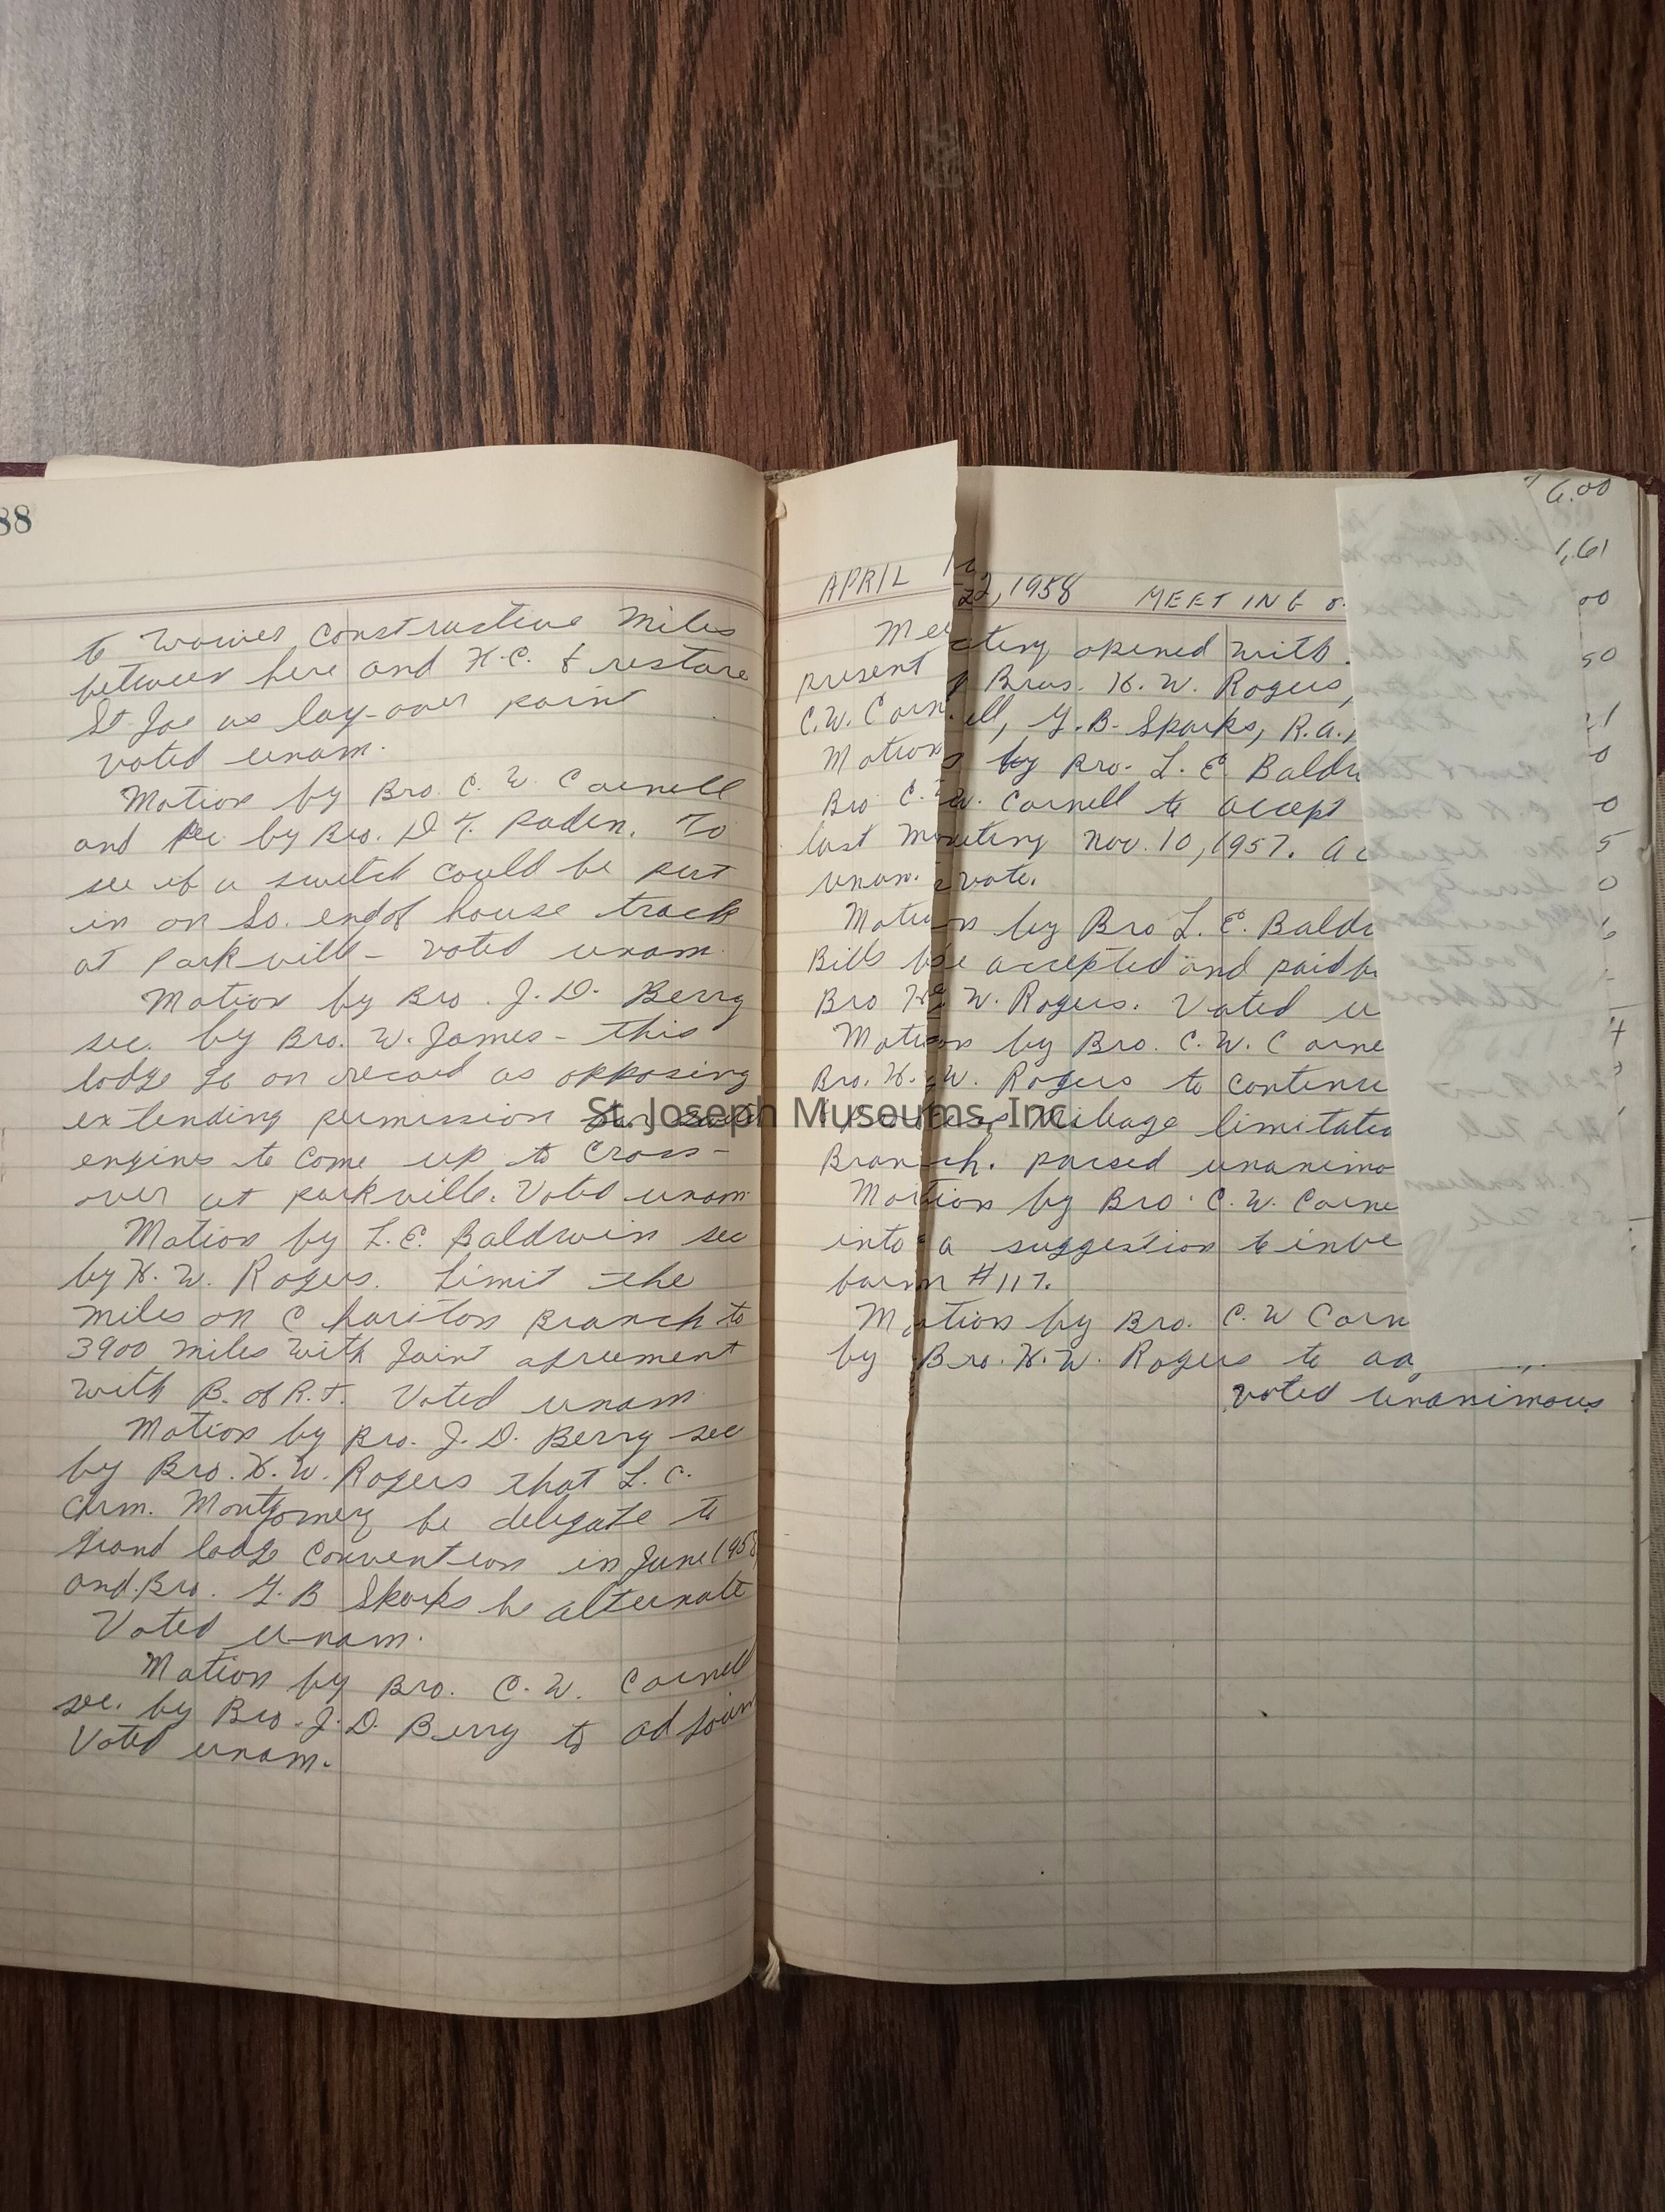 88
to waives constructive miles
between here and K.C. & restore
St. Joe as lay-over point
voted unam.
Motion by Bro. C. W. Cornell
and sec. by Bro. D. T. Paden. To
see if a switch could be put
in on So. end of house track
at Parkvill - voted unam.
Motion by Bro. J. D. Berry
sec. by Bro. W. James - this
lodge go on record as opposing
extending permission for
engines to come up to cross-
over at parkville. Voted unam.
Motion by L. E. Baldwin sec
by H. W. Rogers. Limit the
miles on Chariton Branch to
3900 miles with Joint agreement
with B. of R.t. Voted unam
Motion by Bro. J. D. Berry sec
by Bro. H. W. Rogers that L. C.
Chrm. Montgomery be delegate to
grand lodge convention in June 1958
and Bro. G. B Sparks be alternate
Voted unam.
Motion by Bro. C. W. Cornell
sec. by Bro. J. D. Berry to adjourn
Voted unam.
APRIL 22, 1958 MEETING
Meeting opened with
present Bros. H. W. Rogers,
C.W. Cornell, G. B. Sparks, R.A.
Motion by Bro. L. E. Baldw
Bro C. W. Cornell to accept
last meeting Nov. 10, 1957.
unan. vote.
Motion by Bro L. E. Baldw
Bills be accepted and paid
Bro H. W. Rogers. Voted u
Motion by Bro. C. W. Corne
Bro. H. W. Rogers to continue
mileage limitatio
Branch. passed unanimo
Motion by Bro. C. W. Corne
into a suggestion to inve
barn #117.
Motion by Bro. C. W Corn
by Bro. H. W. Rogers to
voted unanimous
6.00
1.61
00
50
St. Joseph Museums, Inc.